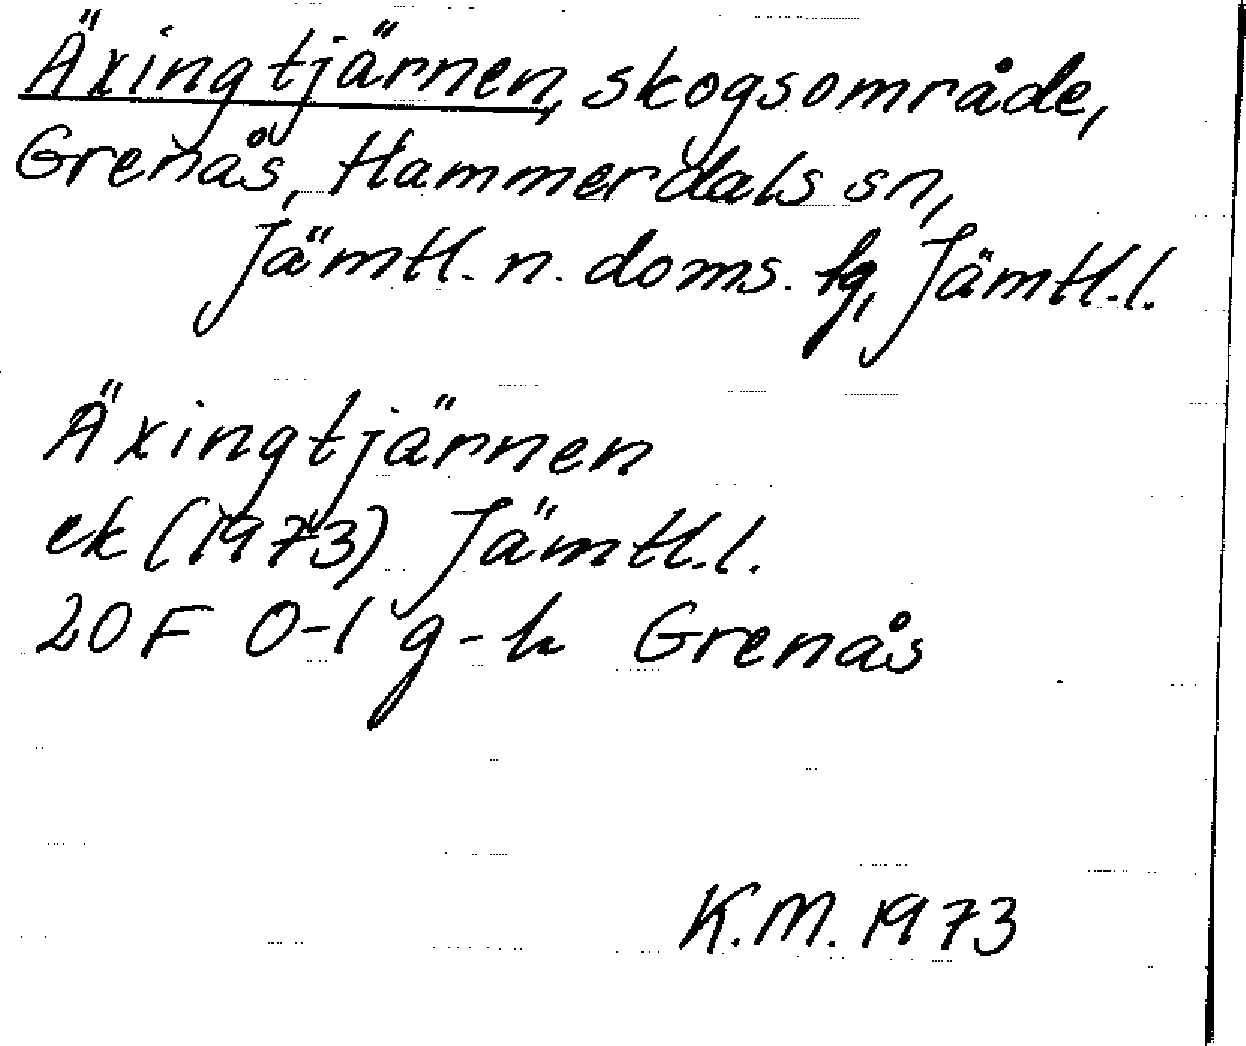 Äxingtjärnen, skogsområde,
Grenås, Hammerdals sn,
Jämtl. n. doms. fg, Jämtl.l.
Äxingtjärnen
ek (1973) Jämtl.l.
20F 0-1 g-h Grenås
K.M. 1973